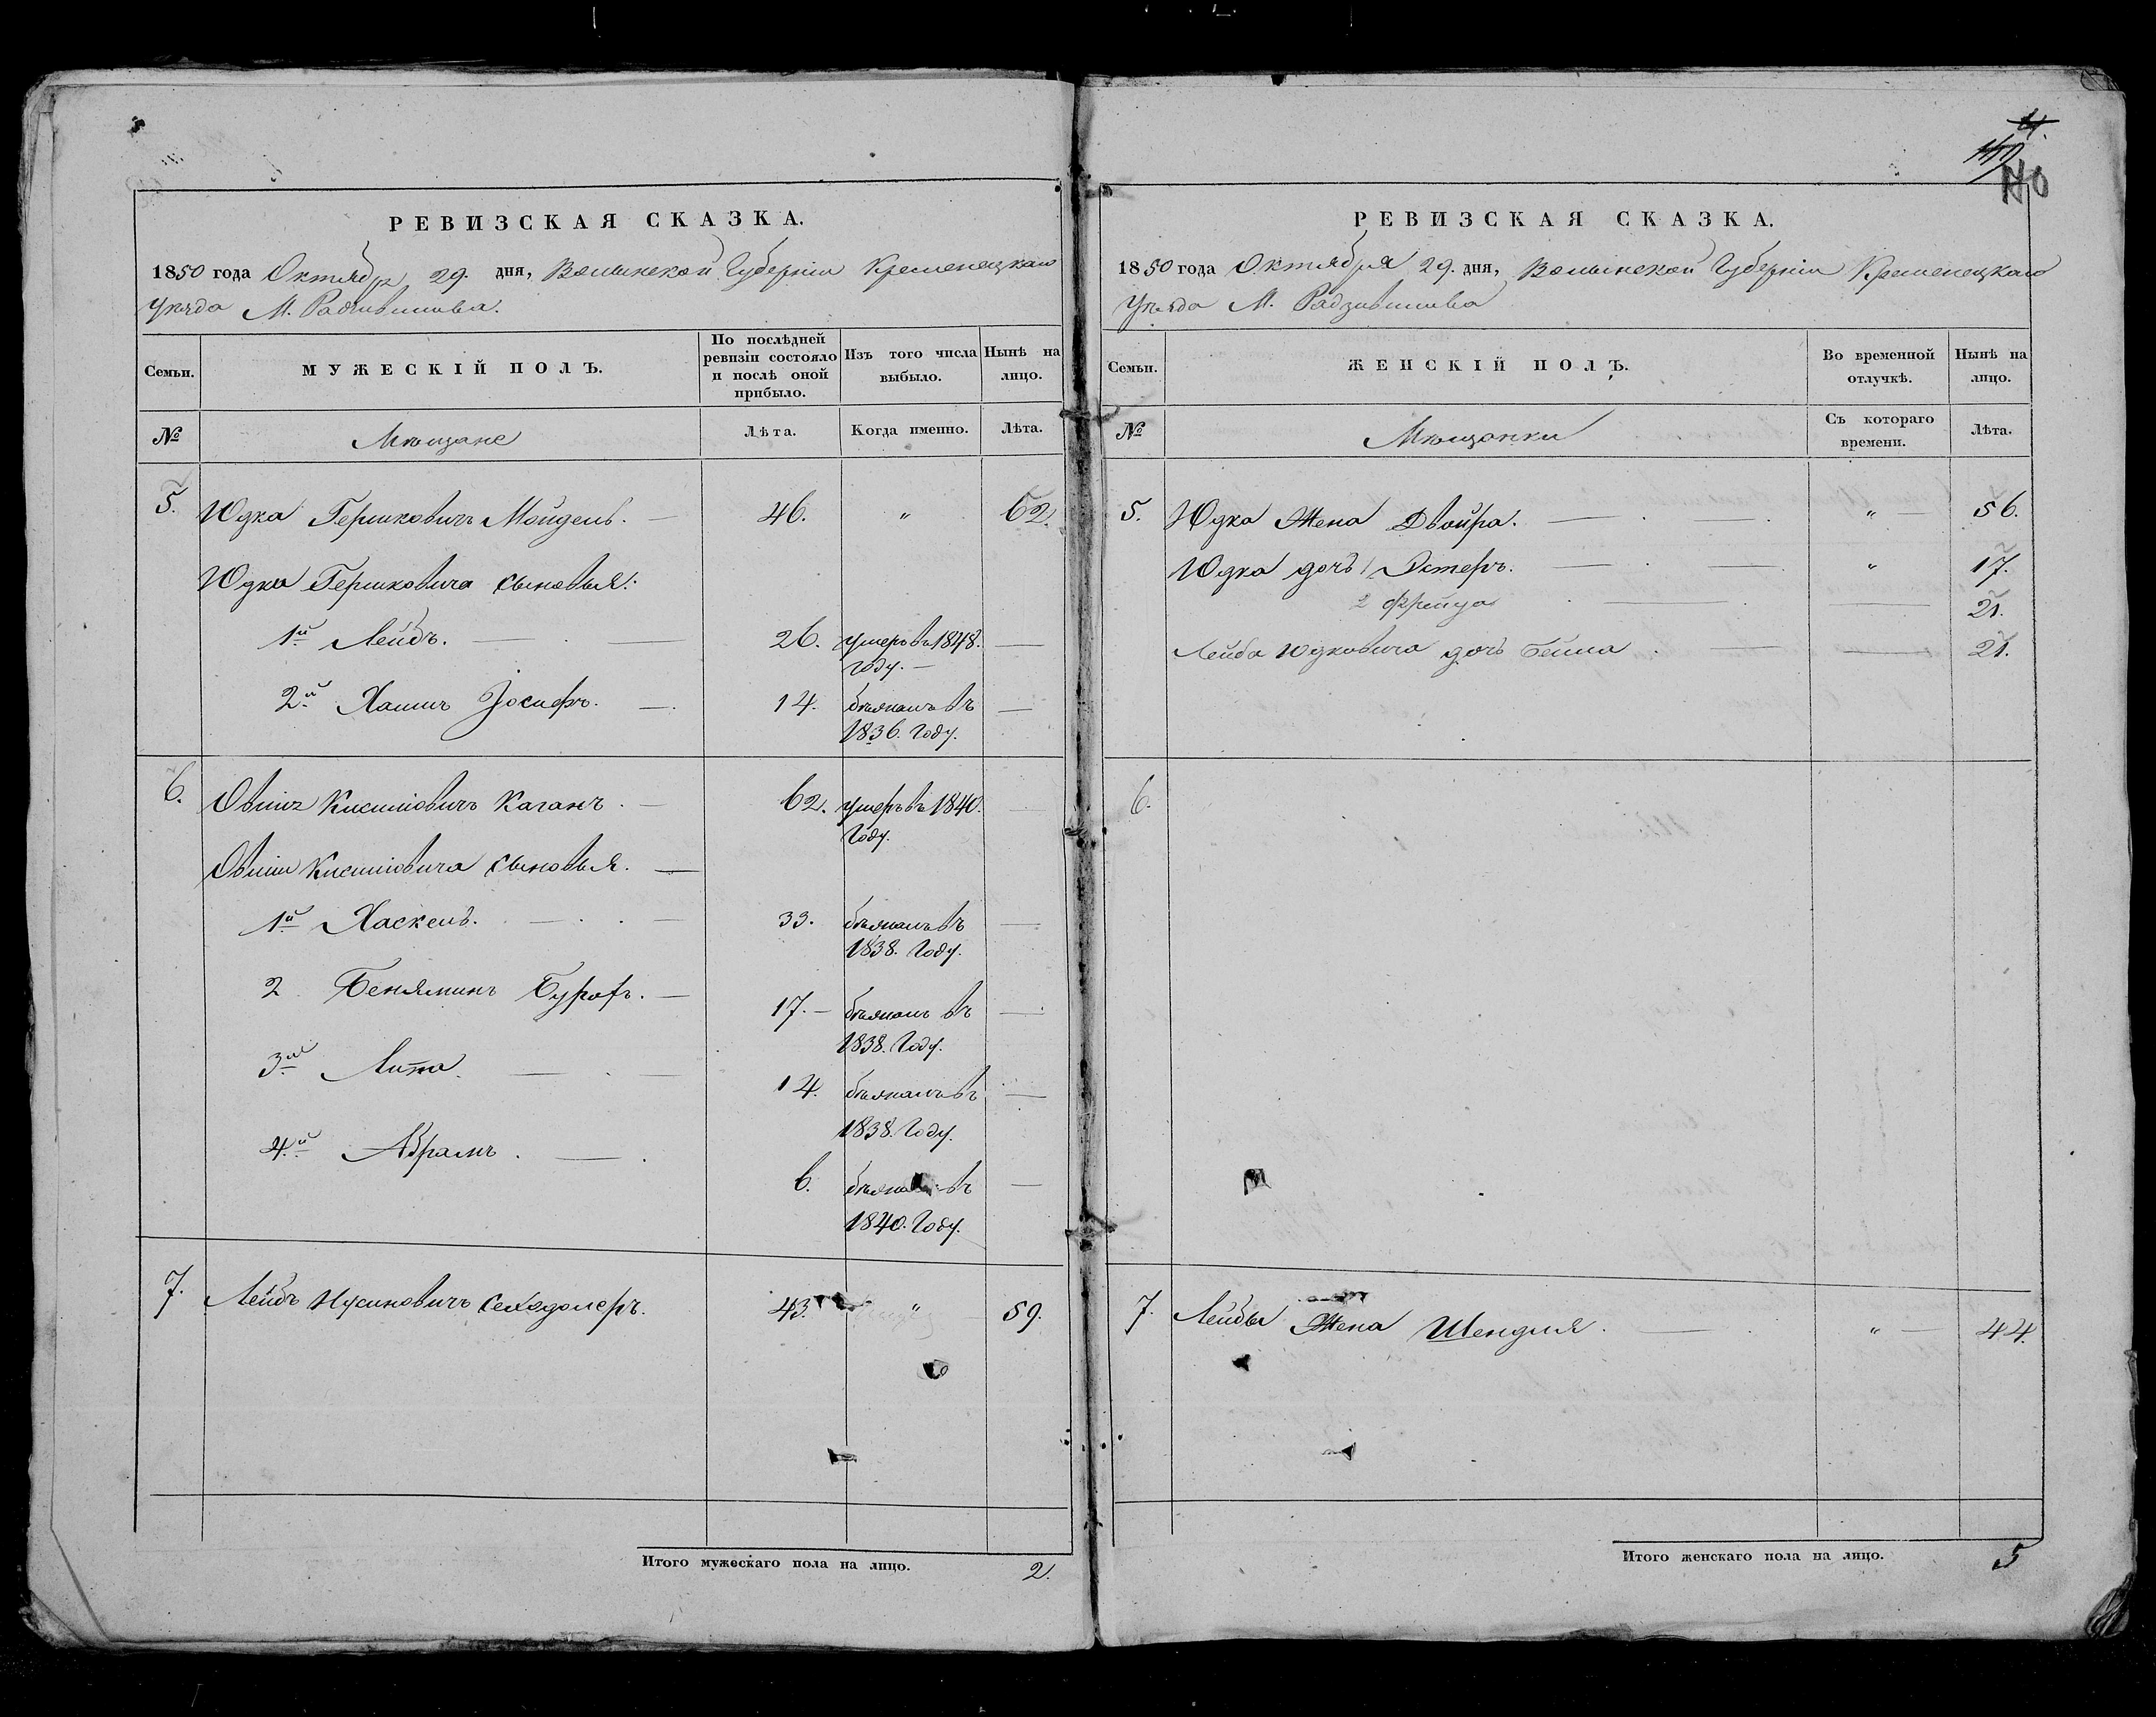 РЕВИЗСКАЯ СКАЗКА.
1850 года Октября 29. дня, Волынской Губерніи Кременецкаго
Уѣзда М. Радзивилова.
Семьи.
МУЖЕСКІЙ ПОЛЪ.
По послѣдней ревизіи состояло и послѣ оной прибыло.
Изъ того числа выбыло.
Нынѣ на лицо.
№
Мѣщане
Лѣта.
Когда именно.
Лѣта.
5. Юдка Гершковичъ Мойдель. 46. " 62.
Юдка Гершковича сыновья:
1й Лейбъ. 26. умеръ въ 1848.
Году.
2.й Хаимъ Іосифъ. 14. бѣжалъ въ
1836. Году.
6. Овшія Кисиліовичъ Каганъ. 62. умеръ въ 1840.
Году.
Овшіи Кисиліовича сыновья.
1й Хаскель. 33. бѣжалъ въ
1838. Году.
2 Беняминъ 17. бѣжалъ въ
1838. Году.
3й 14. бѣжалъ въ
1838. Году.
4.й Абрамъ. 6. бѣжалъ въ
1840. Году.
7. Лейбъ Нусиновичъ 43. " 59.
Итого мужескаго пола на лицо. 2.
110
РЕВИЗСКАЯ СКАЗКА.
1850 года Октября 29. дня, Волынской Губерніи Кременецкаго
Уѣзда М. Радзивилова
Семьи.
ЖЕНСКІЙ ПОЛЪ.
Во временной отлучкѣ.
Нынѣ на лицо.
№
Мѣщанки
Съ котораго времени.
Лѣта.
5. Юдка Жена Двойра. " 56.
Юдка дочь 1 Эстеръ. " 17.
2 Фрейда 21.
Лейба Юдковича дочь Бейла 21.
6.
7. Лейбы Жена Шендля. " 44.
Итого женскаго пола на лицо. 5